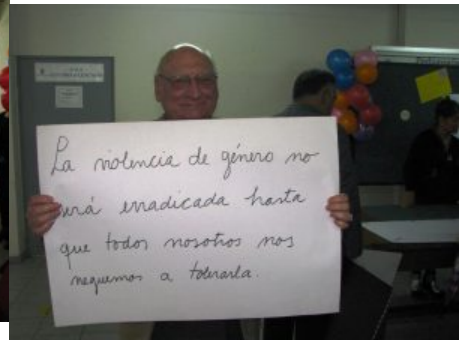 La violencia de género no
será erradicada hasta
que todos nosotros nos
neguemos a tolerarla.